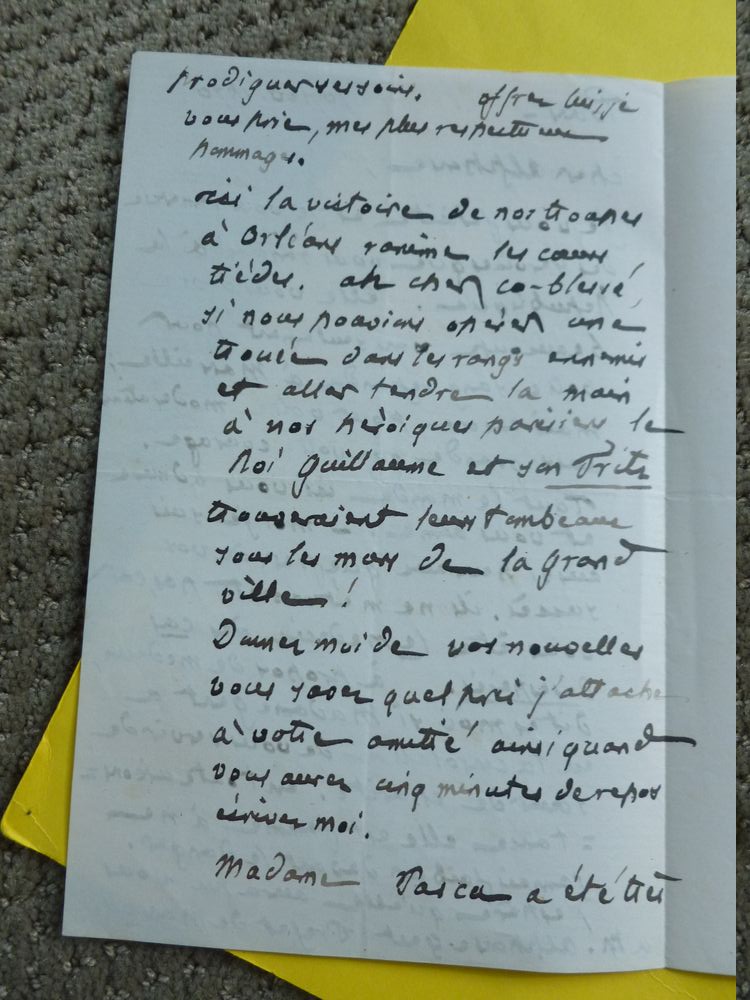 prodiguer ses soins. offrez lui, je
vous prie, mes plus respectueux
hommages.
ici la victoire de nos troupes
à Orléans ranime les cœurs
tièdes. ah cher co-blessé,
si nous pouvions opérer une
trouée dans les rangs ennemis
et aller tendre la main
à nos héroïques parisiens le
Roi Guillaume et son Fritz
trouveraient leurs tombeaux
sous les murs de la grand
ville !
Donnez moi de vos nouvelles
vous savez quel prix j'attache
à votre amitié ainsi quand
vous aurez cinq minutes de repos
écrivez moi.
Madame Pasca a été très